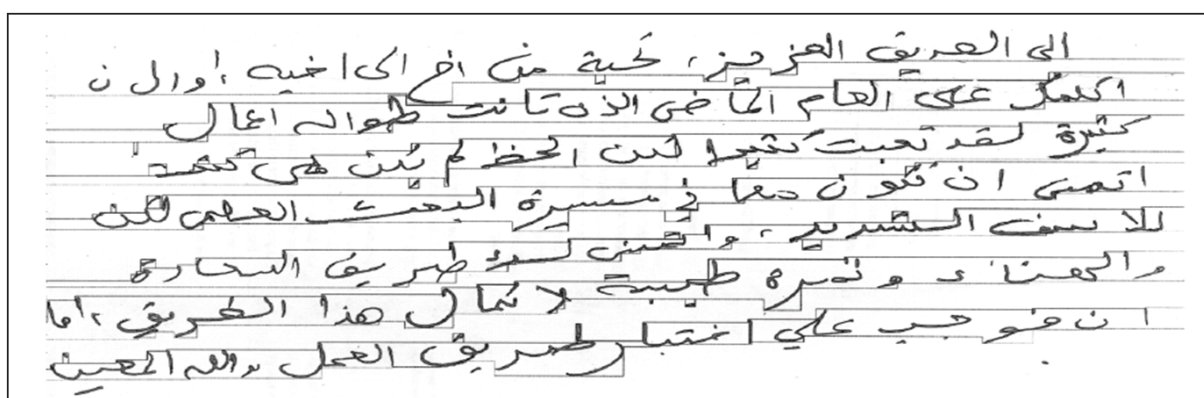 الى الصديق العزيز، تحية من اخ الى اخيه، اوال ن
اكلمك على العام الماضي الذي كانت طواله اعمال
كثيرة لقد تعبت كثيرا لكن الحظ لم يكن في
اتمنى ان نكون معا في مسيرة البحث العلمي لكن
للاسف الشديد، واتمنى لك طريق السعادة
والهناء و طيبة لاكمال هذا الطريق، اما
ان فوجب علي اختيار طريق العمل والله المعين